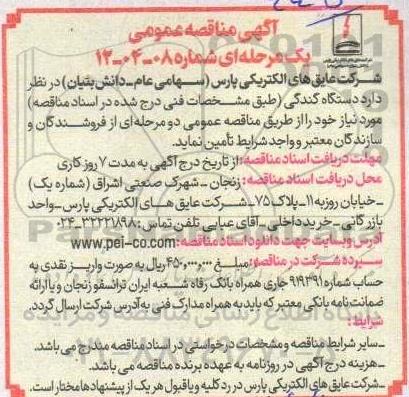 آگهی مناقصه عمومی
یک مرحله‌ای شماره ۰۸-۰۴-۱۲
شرکت عایق‌های الکتریکی پارس (سهامی عام-دانش بنیان) در نظر
دارد دستگاه کندگی (طبق مشخصات فنی درج شده در اسناد مناقصه)
مورد نیاز خود را از طریق مناقصه عمومی دو مرحله‌ای از فروشندگان و
سازندگان معتبر و واجد شرایط تأمین نماید.
مهلت دریافت اسناد مناقصه: از تاریخ درج آگهی به مدت ۷ روز کاری
محل دریافت اسناد مناقصه: زنجان - شهرک صنعتی اشراق (شماره یک)
- خیابان روزبه ۱۱- پلاک ۷۵ - شرکت عایق های الکتریکی پارس- واحد
بازرگانی- خرید داخلی- آقای عبایی تلفن تماس: ۳۲۲۲۱۸۹۸-۰۲۴
آدرس وبسایت جهت دانلود اسناد مناقصه: www.pei-co.com
سپرده شرکت در مناقصه: مبلغ ۴۵۰,۰۰۰,۰۰۰ ریال به صورت واریز نقدی به
حساب شماره ۹۱۹۳۹۱ جاری همراه بانک رفاه شعبه ایران ترانسفو زنجان و یا ارائه
ضمانت نامه بانکی معتبر که باید به همراه مدارک فنی به آدرس شرکت ارسال گردد.
شرایط:
- سایر شرایط مناقصه و مشخصات درخواستی در اسناد مناقصه مندرج می باشد.
- هزینه درج آگهی در روزنامه به عهده برنده مناقصه می باشد.
- شرکت عایق های الکتریکی پارس در رد کلیه و یا قبول هر یک از پیشنهادها مختار است.